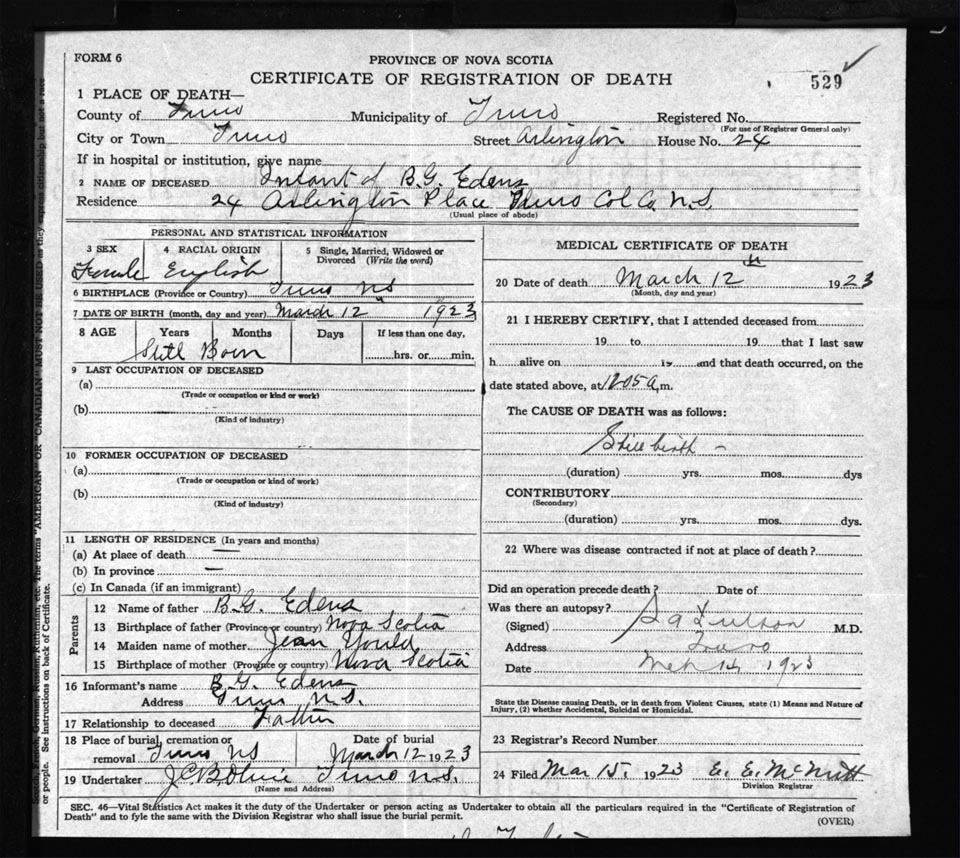 FORM 6
PROVINCE OF NOVA SCOTIA
CERTIFICATE OF REGISTRATION OF DEATH
529
1 PLACE OF DEATH—
County of Truro Municipality of Truro Registered No.
(For use of Registrar General only)
City or Town Truro Street Arlington House No. 24
If in hospital or institution, give name
2 NAME OF DECEASED Infant of B.G. Edens
Residence 24 Arlington Place Truro Col Co. N.S.
(Usual place of abode)
PERSONAL AND STATISTICAL INFORMATION
3 SEX 4 RACIAL ORIGIN 5 Single, Married, Widowed or Divorced (Write the word)
Female English
6 BIRTHPLACE (Province or Country) Truro NS
7 DATE OF BIRTH (month, day and year) March 12 1923
8 AGE Years Months Days If less than one day,
Still Born hrs. or min.
9 LAST OCCUPATION OF DECEASED
(a)
(Trade or occupation or kind or work)
(b)
(Kind of industry)
10 FORMER OCCUPATION OF DECEASED
(a)
(Trade or occupation or kind of work)
(b)
(Kind of industry)
11 LENGTH OF RESIDENCE (In years and months)
(a) At place of death —
(b) In province —
(c) In Canada (if an immigrant)
Parents
12 Name of father B.G. Edens
13 Birthplace of father (Province or country) Nova Scotia
14 Maiden name of mother Jean Yould
15 Birthplace of mother (Province or country) Nova Scotia
16 Informant's name B.G. Edens
Address Truro N.S.
17 Relationship to deceased Father
18 Place of burial, cremation or Date of burial
removal Truro NS March 12 1923
19 Undertaker Truro N.S.
(Name and Address)
MEDICAL CERTIFICATE OF DEATH
20 Date of death March 12th 1923
(Month, day and year)
21 I HEREBY CERTIFY, that I attended deceased from
19 to 19 that I last saw
h alive on 19 and that death occurred, on the
date stated above, at 1205 a.m.
The CAUSE OF DEATH was as follows:
Still birth –
(duration) yrs. mos. dys
CONTRIBUTORY
(Secondary)
(duration) yrs. mos. dys.
22 Where was disease contracted if not at place of death?
Did an operation precede death? Date of
Was there an autopsy?
(Signed) M.D.
Address Truro
Date 14 1923
State the Disease causing Death, or in death from Violent Causes, state (1) Means and Nature of
Injury, (2) whether Accidental, Suicidal or Homicidal.
23 Registrar's Record Number
24 Filed Mar 15. 1923 E. E. McNutt
Division Registrar
SEC. 46—Vital Statistics Act makes it the duty of the Undertaker or person acting as Undertaker to obtain all the particulars required in the "Certificate of Registration of
Death" and to fyle the same with the Division Registrar who shall issue the burial permit.
(OVER)
German, Russian, Ruthenian, etc. The terms "AMERICAN" OR "CANADIAN" MUST NOT BE USED as they express citizenship but not a race
or people. See instructions on back of Certificate.